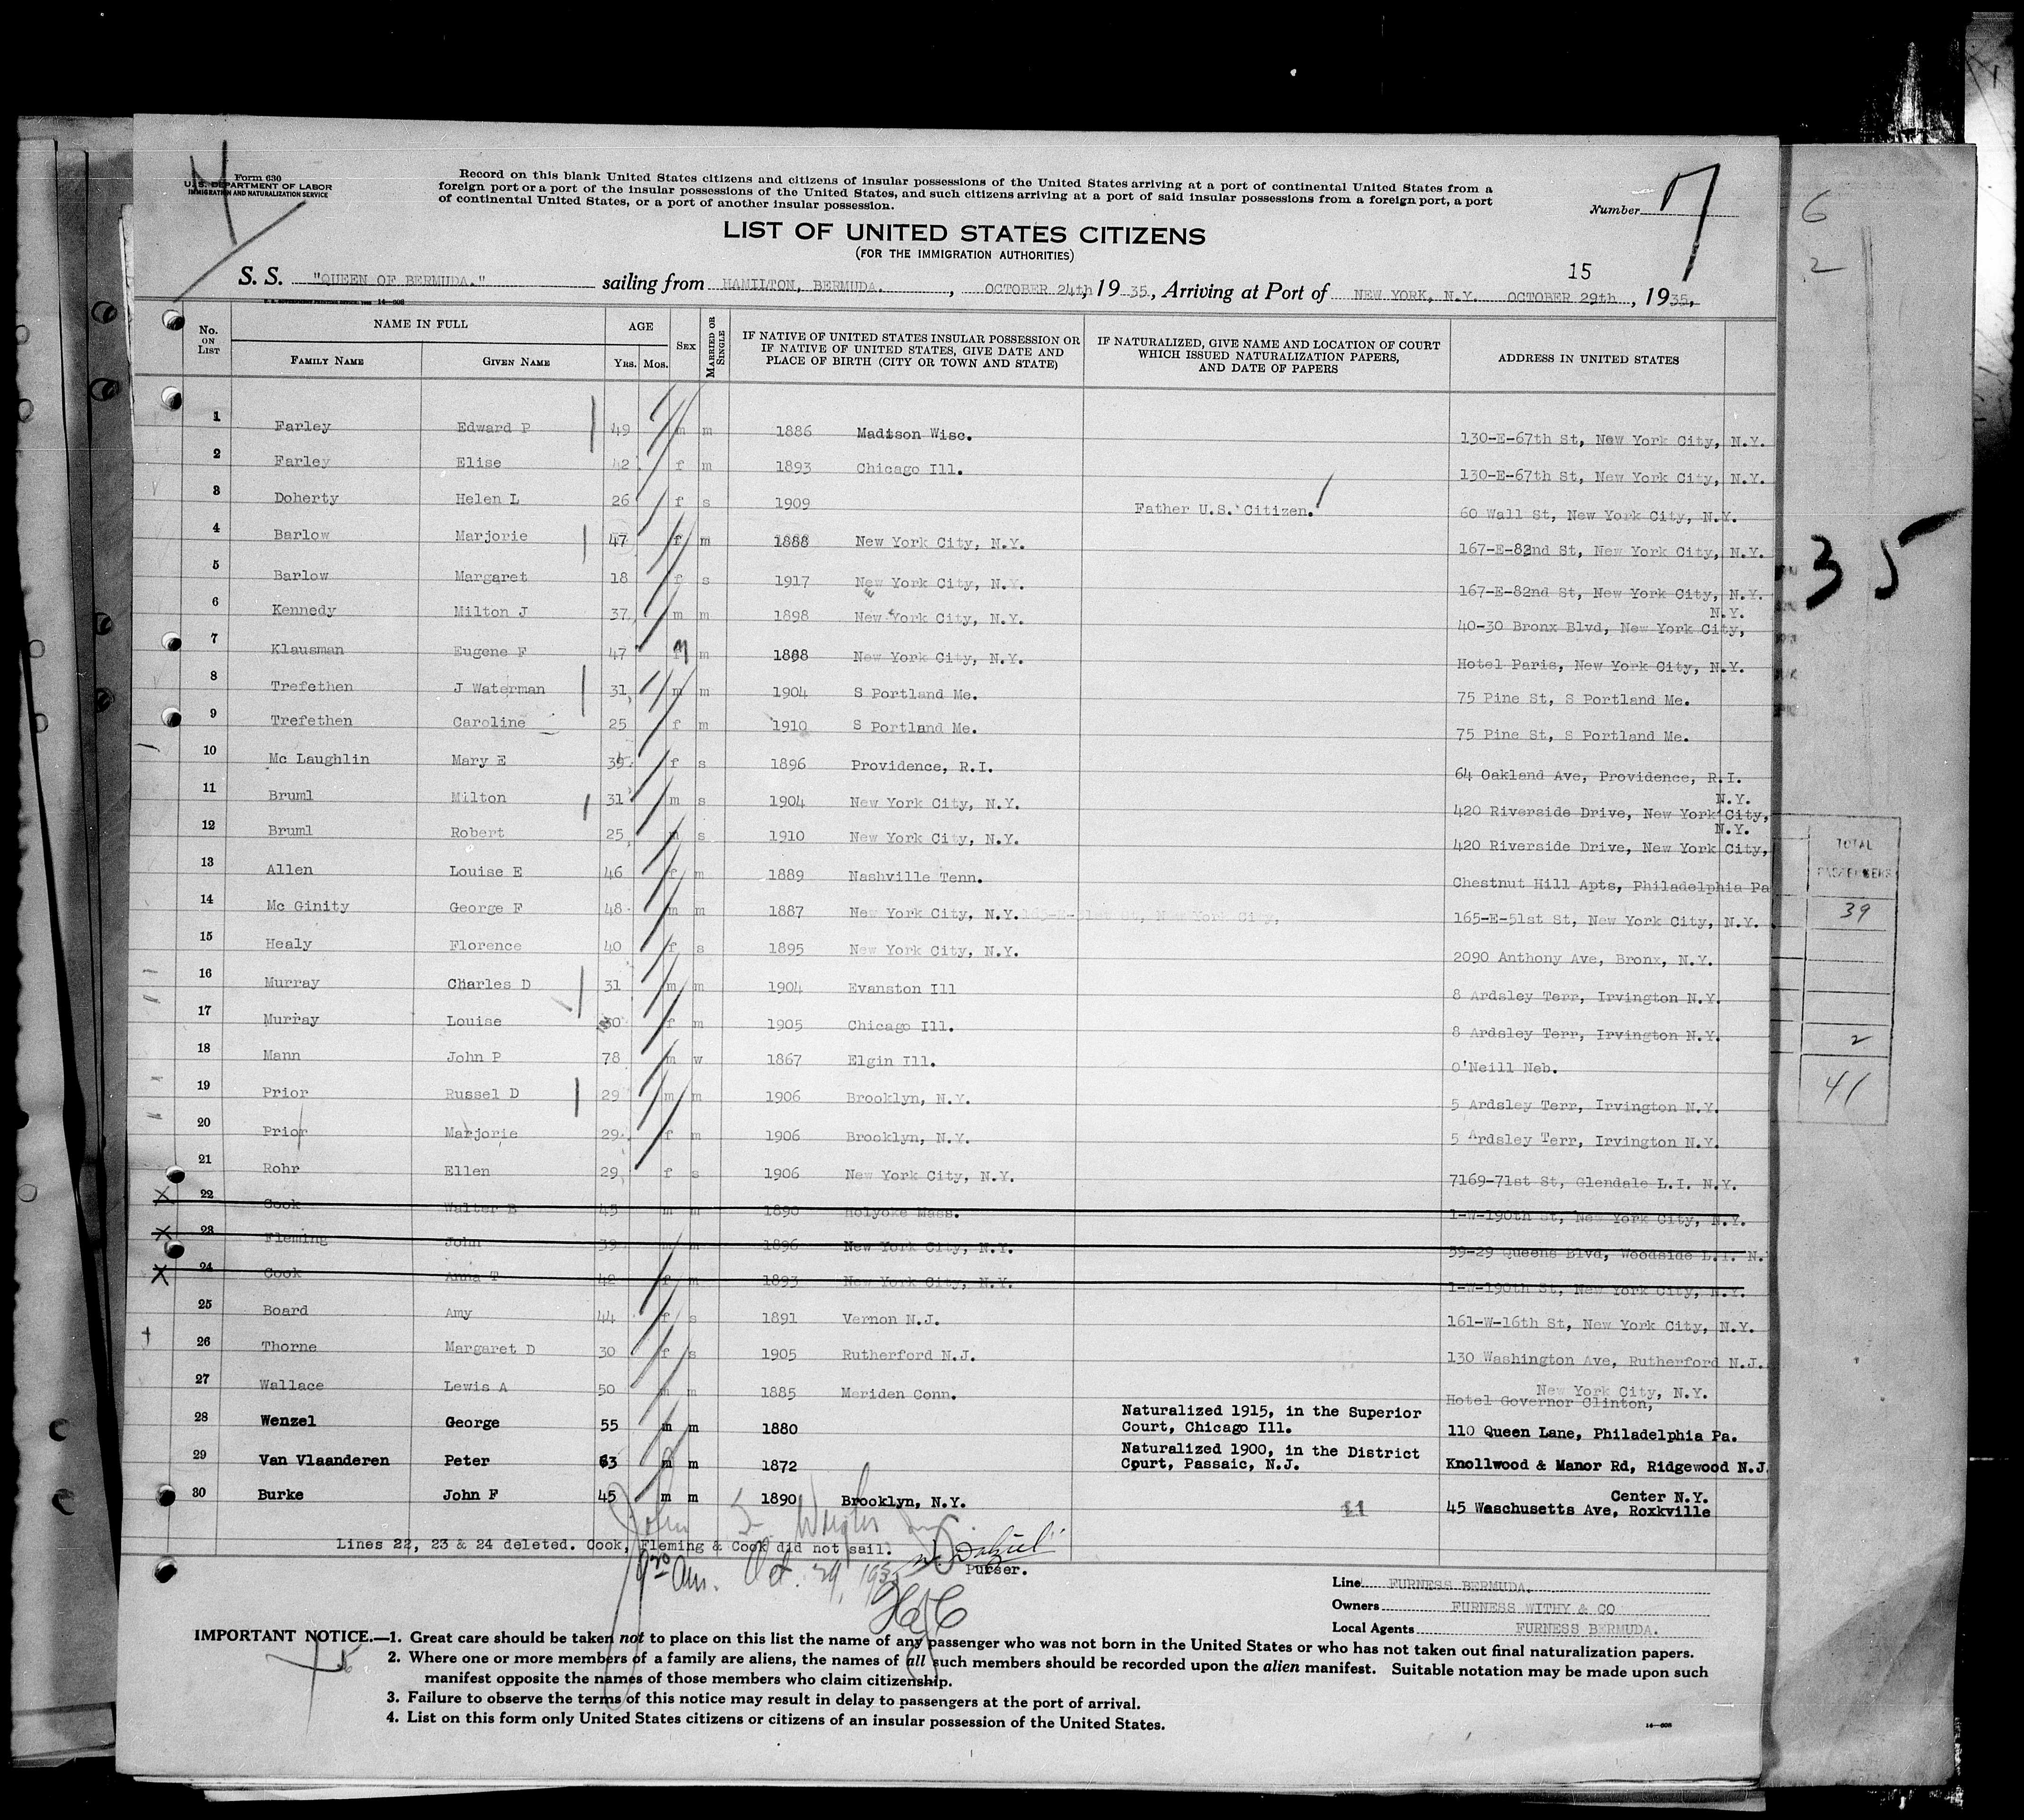 Form 630
U. S. DEPARTMENT OF LABOR
IMMIGRATION AND NATURALIZATION SERVICE
Record on this blank United States citizens and citizens of insular possessions of the United States arriving at a port of continental United States from a
foreign port or a port of the insular possessions of the United States, and such citizens arriving at a port of said insular possessions from a foreign port, a port
of continental United States, or a port of another insular possession.
Number 17
6
2
LIST OF UNITED STATES CITIZENS
(FOR THE IMMIGRATION AUTHORITIES)
15
S. S. "QUEEN OF BERMUDA." sailing from HAMILTON, BERMUDA. , OCTOBER 24th, 1935, Arriving at Port of NEW YORK, N.Y. OCTOBER 29th, 1935,
No. ON LIST NAME IN FULL AGE SEX MARRIED OR SINGLE IF NATIVE OF UNITED STATES INSULAR POSSESSION OR IF NATIVE OF UNITED STATES, GIVE DATE AND PLACE OF BIRTH (CITY OR TOWN AND STATE) IF NATURALIZED, GIVE NAME AND LOCATION OF COURT WHICH ISSUED NATURALIZATION PAPERS, AND DATE OF PAPERS ADDRESS IN UNITED STATES
FAMILY NAME GIVEN NAME YRS. MOS.
1 Farley Edward P 49 m m 1886 Madison Wisc. 130-E-67th St, New York City, N.Y.
2 Farley Elise 42 f m 1893 Chicago Ill. 130-E-67th St, New York City, N.Y.
3 Doherty Helen L 26 f s 1909 Father U.S. Citizen. 60 Wall St, New York City, N.Y.
4 Barlow Marjorie 47 f m 1888 New York City, N.Y. 167-E-82nd St, New York City, N.Y.
5 Barlow Margaret 18 f s 1917 New York City, N.Y. 167-E-82nd St, New York City, N.Y.
6 Kennedy Milton J 37 m m 1898 New York City, N.Y. 40-30 Bronx Blvd, New York City, N.Y.
7 Klausman Eugene F 47 M m 1888 New York City, N.Y. Hotel Paris, New York City, N.Y.
8 Trefethen J Waterman 31 m m 1904 S Portland Me. 75 Pine St, S Portland Me.
9 Trefethen Caroline 25 f m 1910 S Portland Me. 75 Pine St, S Portland Me.
10 Mc Laughlin Mary E 39 f s 1896 Providence, R.I. 64 Oakland Ave, Providence, R.I.
11 Bruml Milton 31 m s 1904 New York City, N.Y. 420 Riverside Drive, New York City, N.Y.
12 Bruml Robert 25 m s 1910 New York City, N.Y. 420 Riverside Drive, New York City, N.Y.
13 Allen Louise E 46 f m 1889 Nashville Tenn. Chestnut Hill Apts, Philadelphia Pa
14 Mc Ginity George F 48 m m 1887 New York City, N.Y. 165-E-51st St, New York City, N.Y.
15 Healy Florence 40 f s 1895 New York City, N.Y. 2090 Anthony Ave, Bronx, N.Y.
16 Murray Charles D 31 m m 1904 Evanston Ill 8 Ardsley Terr, Irvington N.Y.
17 Murray Louise 30 f m 1905 Chicago Ill. 8 Ardsley Terr, Irvington N.Y.
18 Mann John P 78 m w 1867 Elgin Ill. O'Neill Neb.
19 Prior Russel D 29 m m 1906 Brooklyn, N.Y. 5 Ardsley Terr, Irvington N.Y.
20 Prior Marjorie 29 f m 1906 Brooklyn, N.Y. 5 Ardsley Terr, Irvington N.Y.
21 Rohr Ellen 29 f s 1906 New York City, N.Y. 7169-71st St, Glendale L.I. N.Y.
22 Cook Walter E 45 m m 1890 Holyoke Mass. 1-W-190th St, New York City, N.Y.
23 Fleming John 39 m m 1896 New York City, N.Y. 59-29 Queens Blvd, Woodside L.I. N.
24 Cook Anna T 42 f m 1893 New York City, N.Y. 1-W-190th St, New York City, N.Y.
25 Board Amy 44 f s 1891 Vernon N.J. 161-W-16th St, New York City, N.Y.
26 Thorne Margaret D 30 f s 1905 Rutherford N.J. 130 Washington Ave, Rutherford N.J.
27 Wallace Lewis A 50 m m 1885 Meriden Conn. Hotel Governor Clinton, New York City, N.Y.
28 Wenzel George 55 m m 1880 Naturalized 1915, in the Superior Court, Chicago Ill. 110 Queen Lane, Philadelphia Pa.
29 Van Vlaanderen Peter 63 m m 1872 Naturalized 1900, in the District Court, Passaic, N.J. Knollwood & Manor Rd, Ridgewood N.J.
30 Burke John F 45 m m 1890 Brooklyn, N.Y. 11 45 Waschusetts Ave, Roxkville Center N.Y.
35
TOTAL
PASSENGERS
39
2
41
Lines 22, 23 & 24 deleted. Cook, Fleming & Cook did not sail.
Purser.
John
Oct. 29, 1935
Line FURNESS BERMUDA.
Owners FURNESS WITHY & CO
Local Agents FURNESS BERMUDA.
IMPORTANT NOTICE.—1. Great care should be taken not to place on this list the name of any passenger who was not born in the United States or who has not taken out final naturalization papers.
2. Where one or more members of a family are aliens, the names of all such members should be recorded upon the alien manifest. Suitable notation may be made upon such
manifest opposite the names of those members who claim citizenship.
3. Failure to observe the terms of this notice may result in delay to passengers at the port of arrival.
4. List on this form only United States citizens or citizens of an insular possession of the United States.
14—608